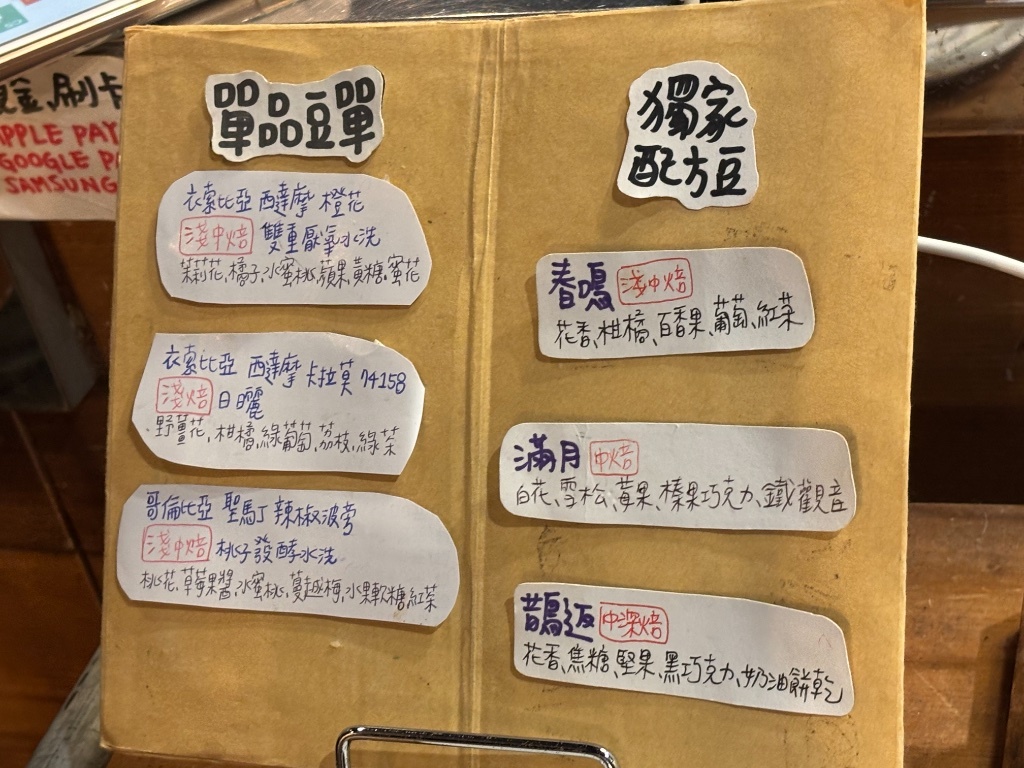 現金、刷卡
APPLE PAY
GOOGLE P
SAMSUNG
單品豆單
衣索比亞 西達摩 橙花
淺中焙 雙重厭氧水洗
茉莉花、橘子、水蜜桃、蘋果、黃糖、蜜花
衣索比亞 西達摩 卡拉莫 74158
淺焙 日曬
野薑花、柑橘、綠葡萄、荔枝、綠茶
哥倫比亞 聖馬丁 辣椒波旁
淺中焙 桃子發酵水洗
桃花、草莓果醬、水蜜桃、蔓越莓、水果軟糖、紅茶
獨家
配方豆
春鳴 淺中焙
花香、柑橘、百香果、葡萄、紅茶
滿月 中焙
白花、雪松、莓果、榛果巧克力、鐵觀音
中深焙
花香、焦糖、堅果、黑巧克力、奶油餅乾